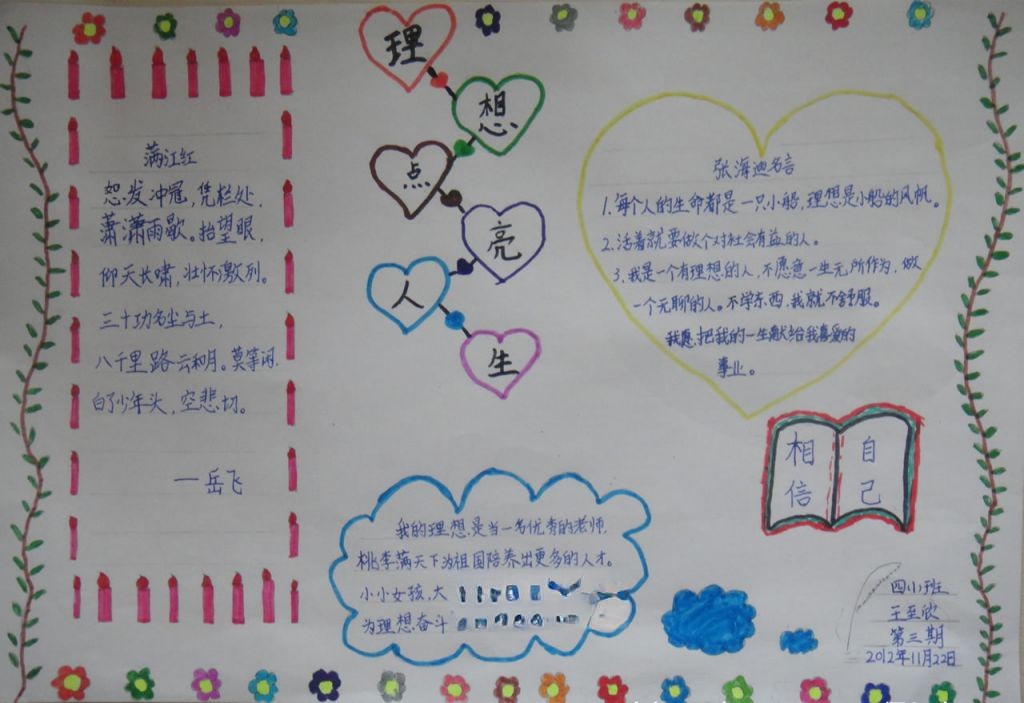 理想点亮人生
满江红
恕发冲冠，凭栏处，
萧潇雨歇。抬望眼，
仰天长啸，壮怀激列。
三十功名尘与土，
八千里路云和月。莫等闲，
白了少年头，空悲切。
—岳飞
张海迪名言
1.每个人的生命都是一只小船，理想是小船的风帆。
2.活着就要做个对社会有益的人。
3.我是一个有理想的人，不愿意一生无所作为，做
一个无聊的人。不学东西，我就不舒服。
我愿把我的一生献给我喜爱的
事业。
相信自己
我的理想是当一名优秀的老师，
桃李满天下为祖国培养出更多的人才。
小小女孩，大
为理想奋斗
四小班
王至欣
第三期
2012年11月22日